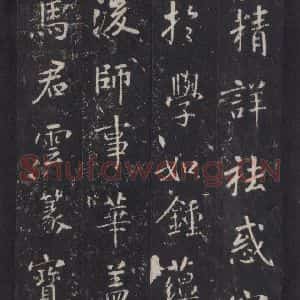 精詳祛惑
於學鍾
師事華蓋
馬君雲篆寶
Shufawang.CN